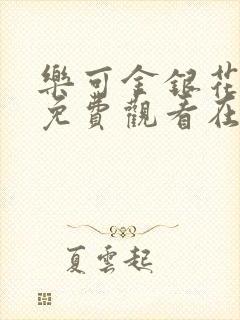 樂可金銀花
免費觀看在
夏雲起